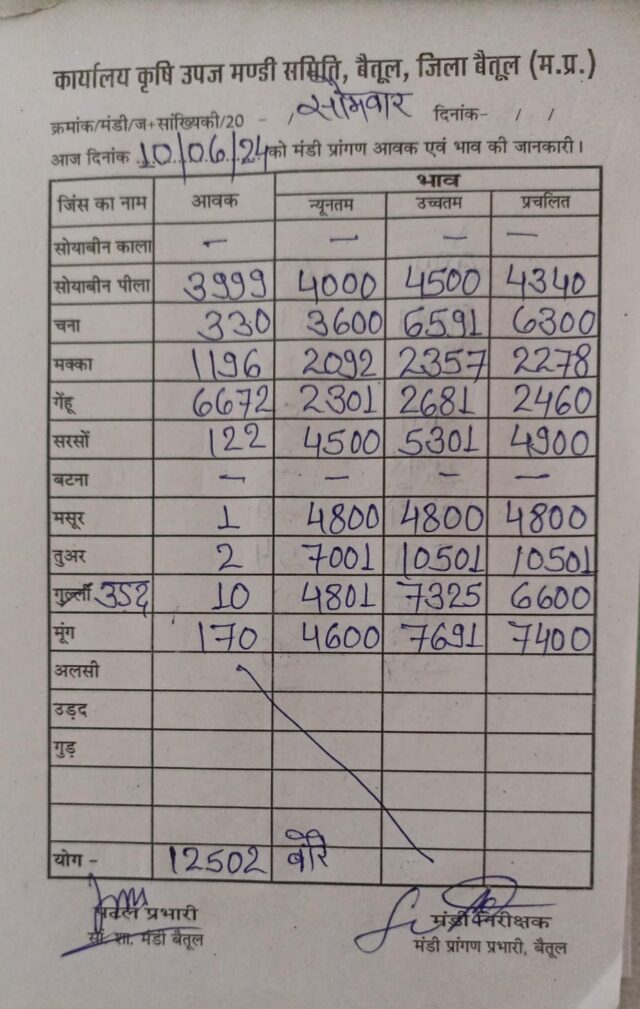 कार्यालय कृषि उपज मण्डी समिति, बैतूल, जिला बैतूल (म.प्र.)
क्रमांक/मंडी/ज+सांख्यिकी/20 - / सोमवार दिनांक- / /
आज दिनांक 10/06/24 को मंडी प्रांगण आवक एवं भाव की जानकारी।
जिंस का नाम आवक भाव
न्यूनतम उच्चतम प्रचलित
सोयाबीन काला - - - -
सोयाबीन पीला 3999 4000 4500 4340
चना 330 3600 6591 6300
मक्का 1196 2092 2357 2278
गेंहू 6672 2301 2681 2460
सरसों 122 4500 5301 4900
बटना - - - -
मसूर 1 4800 4800 4800
तुअर 2 7001 10501 10501
गुल्ली उड़द 10 4801 7325 6600
मूंग 170 4600 7691 7400
अलसी
उड़द
गुड़
योग - 12502 बोरे
प्रभारी मंडी निरीक्षक
सां. शा. मंडी बैतूल मंडी प्रांगण प्रभारी, बैतूल